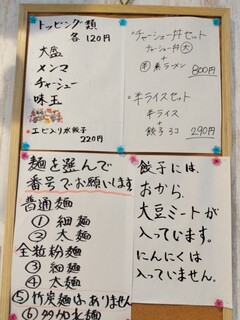 トッピング類
各120円
大盛
メンマ
チャーシュー
味玉
エビ入り水餃子
220円
チャーシュー丼セット
チャーシュー丼 大
+
半 素ラーメン
800円
半ライスセット
半ライス
+
餃子3コ 290円
麺を選んで
番号でお願いします
普通麺
① 細麺
② 太麺
全粒粉麺
③ 細麺
④ 太麺
⑤ 竹炭麺はありません
⑥
餃子には、
おから、
大豆ミートが
入っています。
にんにくは
入っていません。